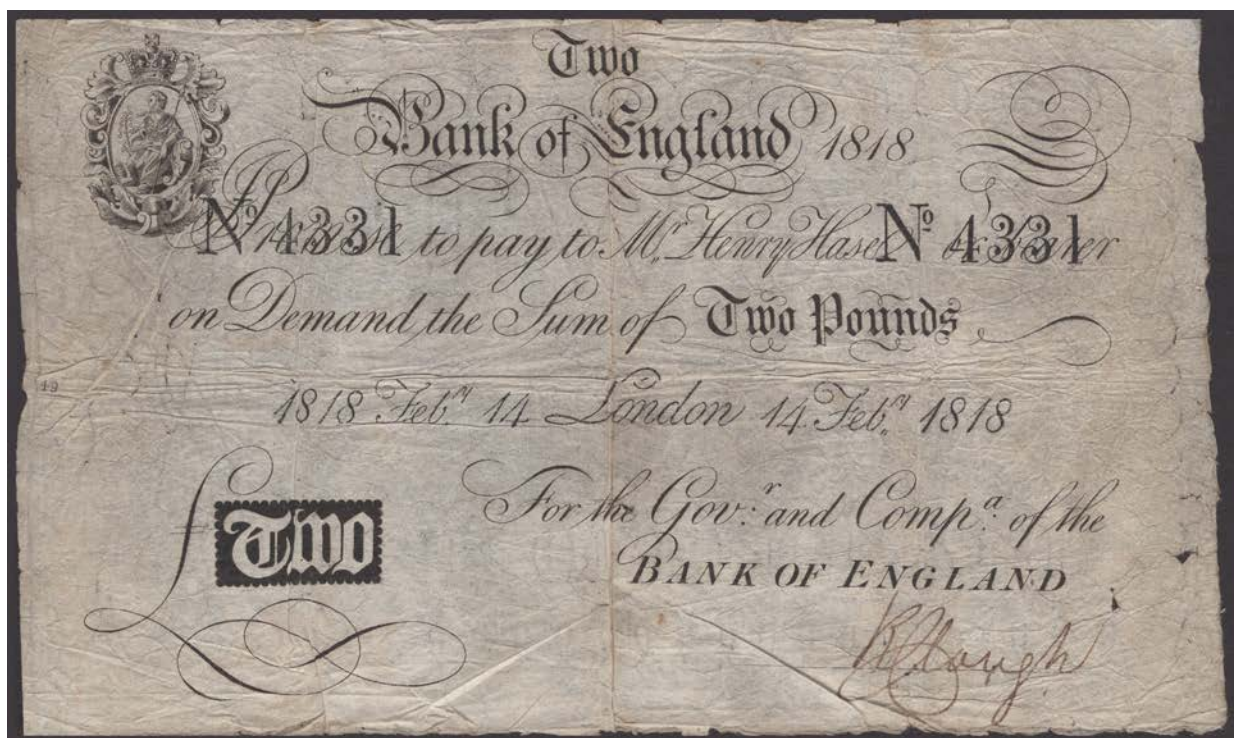 Two
Bank of England 1818
I Promise to pay to Mr. Henry Hase or bearer
Nº 4331 Nº 4331
on Demand the Sum of Two Pounds
49
1818 Feb.ry 14 London 14 Feb.ry 1818
For the Gov.r and Comp.a of the
£ Two
BANK OF ENGLAND